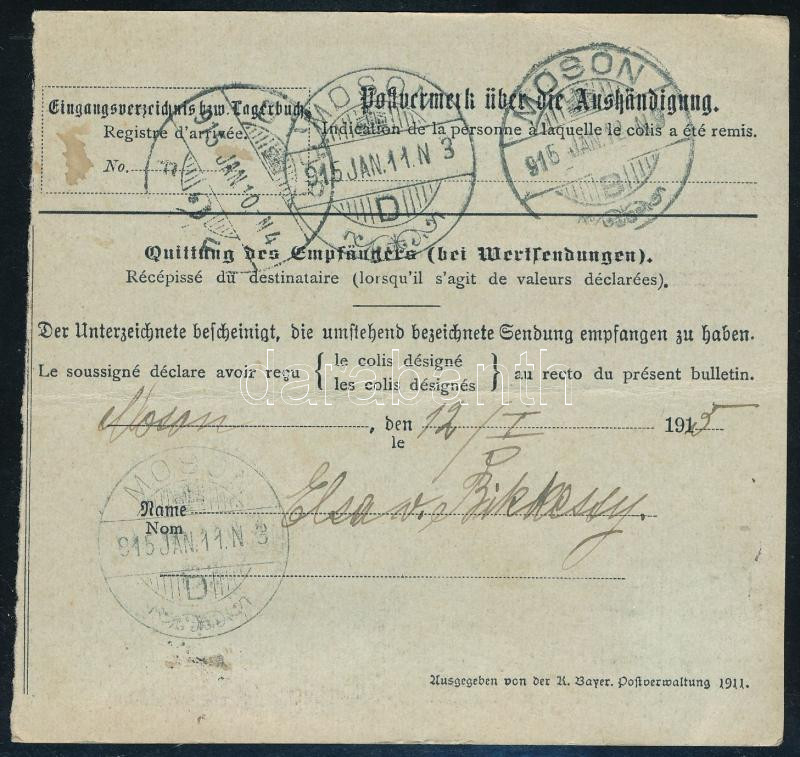 Eingangsverzeichnis bzw. Tagerbuch
Registre d'arrivée.
No.
Postvermerk über die Aushändigung.
Indication de la personne à laquelle le colis a été remis.
915 JAN 10. N 4
MOSON
915 JAN. 11. N 3
D
MOSON
915 JAN.
B
Quittung des Empfängers (bei Wertsendungen).
Récépissé du destinataire (lorsqu'il s'agit de valeurs déclarées).
Der Unterzeichnete bescheinigt, die umstehend bezeichnete Sendung empfangen zu haben.
Le soussigné déclare avoir reçu { le colis désigné
les colis désignés } au recto du présent bulletin.
darabanth
Moson, den 12/I 1915
le
MOSON
915 JAN. 11. N 3
D
Name Elsa v. Bikkessy.
Nom
Ausgegeben von der K. Bayer. Postverwaltung 1911.